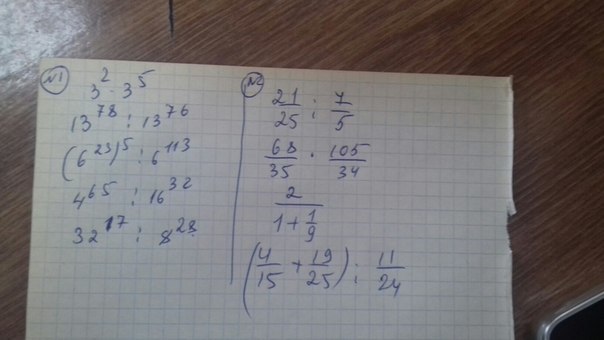 №1
3² · 3⁵
13⁷⁸ : 13⁷⁶
(6²³)⁵ : 6¹¹³
4⁶⁵ : 16³²
32¹⁷ : 8²⁸
№2
21/25 : 7/5
68/35 · 105/34
2/(1+1/9)
(4/15 + 19/25) : 11/24